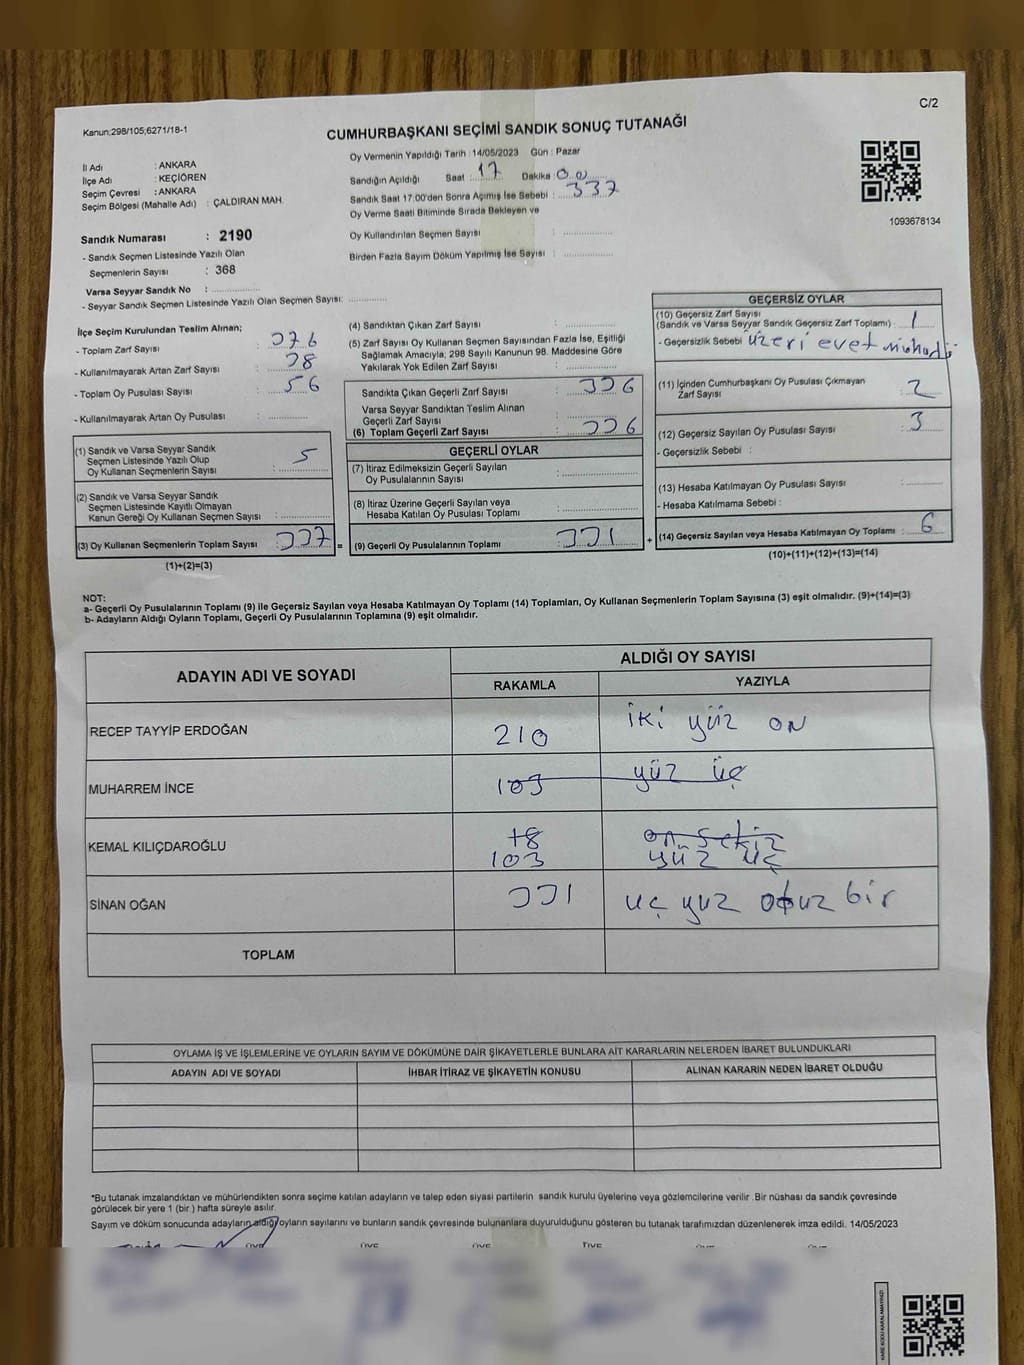 C/2
Kanun;298/105;6271/18-1
CUMHURBAŞKANI SEÇİMİ SANDIK SONUÇ TUTANAĞI
İl Adı : ANKARA
İlçe Adı : KEÇİÖREN
Seçim Çevresi : ANKARA
Seçim Bölgesi (Mahalle Adı) : ÇALDIRAN MAH.
Oy Vermenin Yapıldığı Tarih : 14/05/2023 Gün : Pazar
Sandığın Açıldığı Saat 17 Dakika : 00
Sandık Saat 17:00'den Sonra Açımış İse Sebebi : 337
Oy Verme Saati Bitiminde Sırada Bekleyen ve
Oy Kullandırılan Seçmen Sayısı :
Birden Fazla Sayım Döküm Yapılmış İse Sayısı :
1093678134
Sandık Numarası : 2190
- Sandık Seçmen Listesinde Yazılı Olan
Seçmenlerin Sayısı : 368
Varsa Seyyar Sandık No :
- Seyyar Sandık Seçmen Listesinde Yazılı Olan Seçmen Sayısı:
İlçe Seçim Kurulundan Teslim Alınan;
- Toplam Zarf Sayısı : 376
- Kullanılmayarak Artan Zarf Sayısı : 38
- Toplam Oy Pusulası Sayısı : 56
- Kullanılmayarak Artan Oy Pusulası :
(1) Sandık ve Varsa Seyyar Sandık
Seçmen Listesinde Yazılı Olup
Oy Kullanan Seçmenlerin Sayısı : 5
(2) Sandık ve Varsa Seyyar Sandık
Seçmen Listesinde Kayıtlı Olmayan
Kanun Gereği Oy Kullanan Seçmen Sayısı :
(3) Oy Kullanan Seçmenlerin Toplam Sayısı : 337 =
(1)+(2)=(3)
(4) Sandıktan Çıkan Zarf Sayısı :
(5) Zarf Sayısı Oy Kullanan Seçmen Sayısından Fazla İse, Eşitliği
Sağlamak Amacıyla; 298 Sayılı Kanunun 98. Maddesine Göre
Yakılarak Yok Edilen Zarf Sayısı :
Sandıkta Çıkan Geçerli Zarf Sayısı : 336
Varsa Seyyar Sandıktan Teslim Alınan
Geçerli Zarf Sayısı :
(6) Toplam Geçerli Zarf Sayısı : 336
GEÇERLİ OYLAR
(7) İtiraz Edilmeksizin Geçerli Sayılan
Oy Pusulalarının Sayısı :
(8) İtiraz Üzerine Geçerli Sayılan veya
Hesaba Katılan Oy Pusulası Toplamı :
(9) Geçerli Oy Pusulalarının Toplamı : 331 +
GEÇERSİZ OYLAR
(10) Geçersiz Zarf Sayısı
(Sandık ve Varsa Seyyar Sandık Geçersiz Zarf Toplamı) : 1
- Geçersizlik Sebebi : üzeri evet
(11) İçinden Cumhurbaşkanı Oy Pusulası Çıkmayan
Zarf Sayısı : 2
(12) Geçersiz Sayılan Oy Pusulası Sayısı : 3
- Geçersizlik Sebebi :
(13) Hesaba Katılmayan Oy Pusulası Sayısı :
- Hesaba Katılmama Sebebi :
(14) Geçersiz Sayılan veya Hesaba Katılmayan Oy Toplamı : 6
(10)+(11)+(12)+(13)=(14)
NOT:
a- Geçerli Oy Pusulalarının Toplamı (9) ile Geçersiz Sayılan veya Hesaba Katılmayan Oy Toplamı (14) Toplamları, Oy Kullanan Seçmenlerin Toplam Sayısına (3) eşit olmalıdır. (9)+(14)=(3)
b- Adayların Aldığı Oyların Toplamı, Geçerli Oy Pusulalarının Toplamına (9) eşit olmalıdır.
ADAYIN ADI VE SOYADI
ALDIĞI OY SAYISI
RAKAMLA YAZIYLA
RECEP TAYYİP ERDOĞAN 210 iki yüz on
MUHARREM İNCE 103 yüz üç
KEMAL KILIÇDAROĞLU 18 on sekiz
103 yüz üç
SİNAN OĞAN 331 üç yüz otuz bir
TOPLAM
OYLAMA İŞ VE İŞLEMLERİNE VE OYLARIN SAYIM VE DÖKÜMÜNE DAİR ŞİKAYETLERLE BUNLARA AİT KARARLARIN NELERDEN İBARET BULUNDUKLARI
ADAYIN ADI VE SOYADI İHBAR İTİRAZ VE ŞİKAYETİN KONUSU ALINAN KARARIN NEDEN İBARET OLDUĞU
*Bu tutanak imzalandıktan ve mühürlendikten sonra seçime katılan adayların ve talep eden siyasi partilerin sandık kurulu üyelerine veya gözlemcilerine verilir .Bir nüshası da sandık çevresinde
görülecek bir yere 1 (bir ) hafta süreyle asılır.
Sayım ve döküm sonucunda adayların aldığı oyların sayılarını ve bunların sandık çevresinde bulunanlara duyurulduğunu gösteren bu tutanak tarafımızdan düzenlenerek imza edildi. 14/05/2023